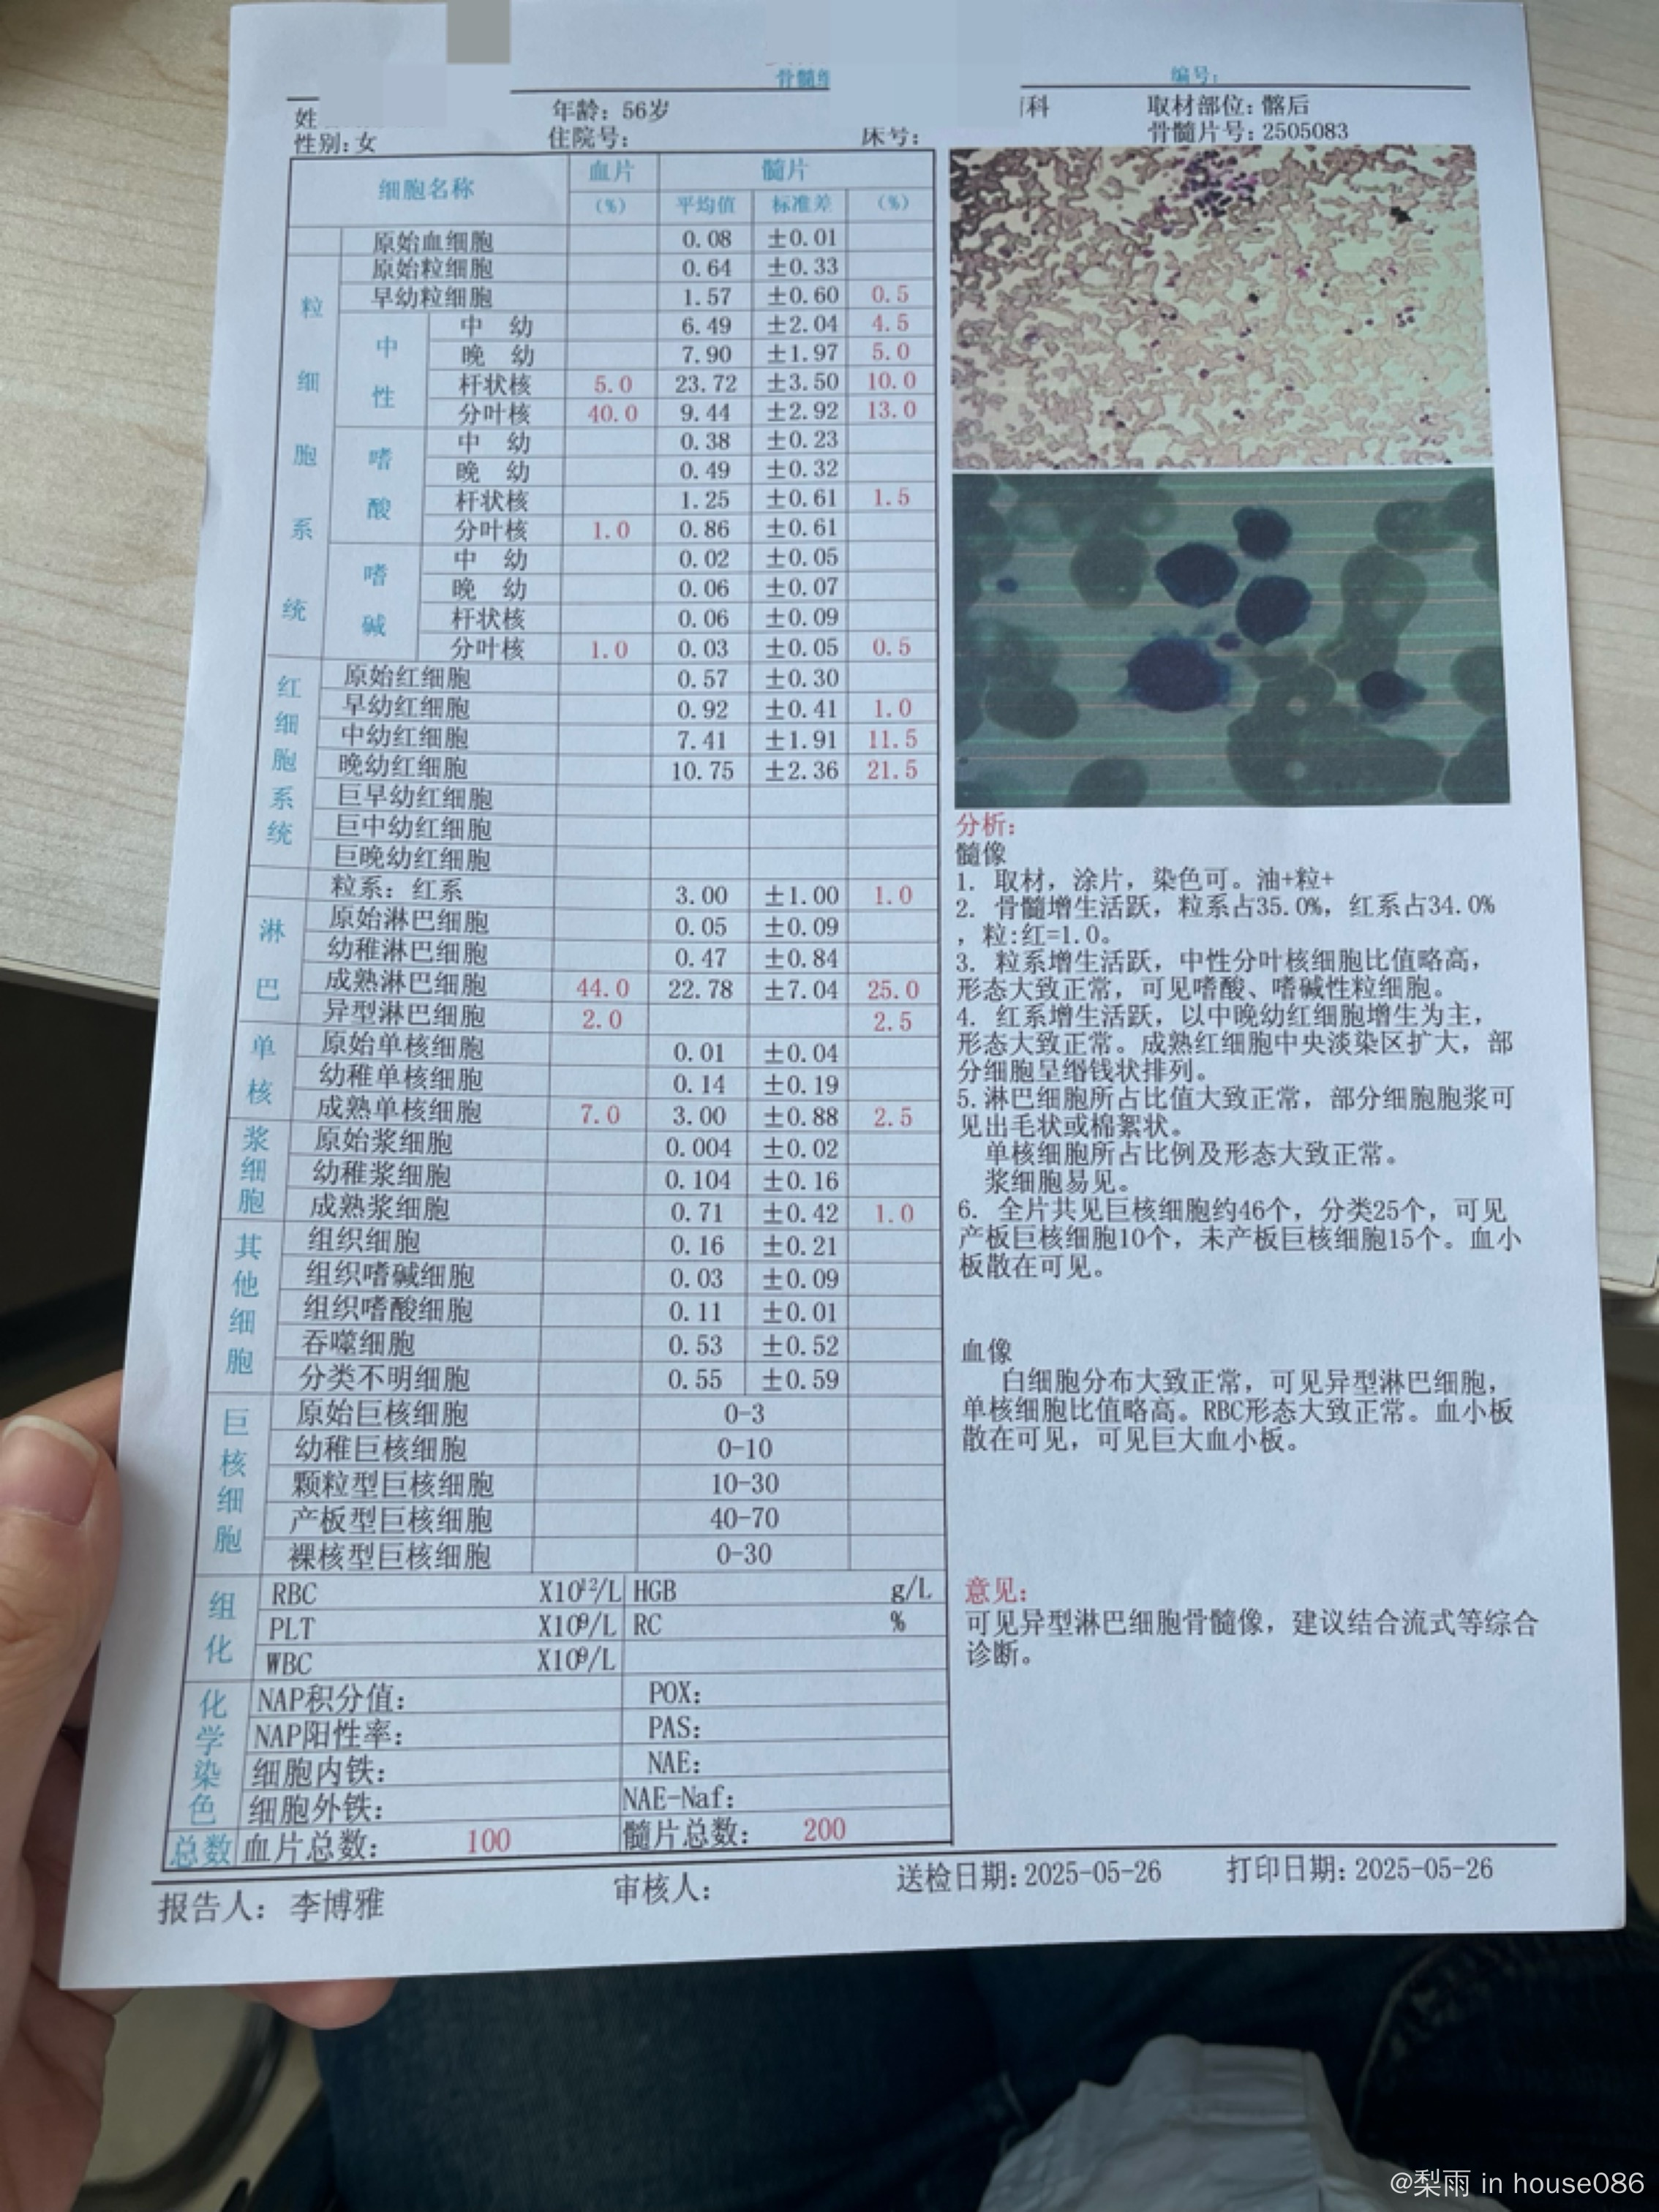 骨髓细
编号:
姓
年龄: 56岁
科
取材部位: 髂后
性别: 女
住院号:
床号:
骨髓片号: 2505083
细胞名称 血片 髓片
(%) 平均值 标准差 (%)
原始血细胞 0.08 ±0.01
粒细胞系统
原始粒细胞 0.64 ±0.33
早幼粒细胞 1.57 ±0.60 0.5
中性
中 幼 6.49 ±2.04 4.5
晚 幼 7.90 ±1.97 5.0
杆状核 5.0 23.72 ±3.50 10.0
分叶核 40.0 9.44 ±2.92 13.0
嗜酸
中 幼 0.38 ±0.23
晚 幼 0.49 ±0.32
杆状核 1.25 ±0.61 1.5
分叶核 1.0 0.86 ±0.61
嗜碱
中 幼 0.02 ±0.05
晚 幼 0.06 ±0.07
杆状核 0.06 ±0.09
分叶核 1.0 0.03 ±0.05 0.5
红细胞系统
原始红细胞 0.57 ±0.30
早幼红细胞 0.92 ±0.41 1.0
中幼红细胞 7.41 ±1.91 11.5
晚幼红细胞 10.75 ±2.36 21.5
巨早幼红细胞
巨中幼红细胞
巨晚幼红细胞
粒系: 红系 3.00 ±1.00 1.0
淋巴
原始淋巴细胞 0.05 ±0.09
幼稚淋巴细胞 0.47 ±0.84
成熟淋巴细胞 44.0 22.78 ±7.04 25.0
异型淋巴细胞 2.0 2.5
单核
原始单核细胞 0.01 ±0.04
幼稚单核细胞 0.14 ±0.19
成熟单核细胞 7.0 3.00 ±0.88 2.5
浆细胞
原始浆细胞 0.004 ±0.02
幼稚浆细胞 0.104 ±0.16
成熟浆细胞 0.71 ±0.42 1.0
其他细胞
组织细胞 0.16 ±0.21
组织嗜碱细胞 0.03 ±0.09
组织嗜酸细胞 0.11 ±0.01
吞噬细胞 0.53 ±0.52
分类不明细胞 0.55 ±0.59
巨核细胞
原始巨核细胞 0-3
幼稚巨核细胞 0-10
颗粒型巨核细胞 10-30
产板型巨核细胞 40-70
裸核型巨核细胞 0-30
组化
RBC X10¹²/L HGB g/L
PLT X10⁹/L RC %
WBC X10⁹/L
化学染色
NAP积分值: POX:
NAP阳性率: PAS:
细胞内铁: NAE:
细胞外铁: NAE-Naf:
总数 血片总数: 100 髓片总数: 200
分析:
髓像
1. 取材, 涂片, 染色可。油+粒+
2. 骨髓增生活跃, 粒系占35.0%, 红系占34.0%
, 粒:红=1.0。
3. 粒系增生活跃, 中性分叶核细胞比值略高,
形态大致正常, 可见嗜酸、嗜碱性粒细胞。
4. 红系增生活跃, 以中晚幼红细胞增生为主,
形态大致正常。成熟红细胞中央淡染区扩大, 部
分细胞呈缗钱状排列。
5.淋巴细胞所占比值大致正常, 部分细胞胞浆可
见出毛状或棉絮状。
单核细胞所占比例及形态大致正常。
浆细胞易见。
6. 全片共见巨核细胞约46个, 分类25个, 可见
产板巨核细胞10个, 未产板巨核细胞15个。血小
板散在可见。
血像
白细胞分布大致正常, 可见异型淋巴细胞,
单核细胞比值略高。RBC形态大致正常。血小板
散在可见, 可见巨大血小板。
意见:
可见异型淋巴细胞骨髓像, 建议结合流式等综合
诊断。
报告人: 李博雅
审核人:
送检日期: 2025-05-26
打印日期: 2025-05-26
@梨雨 in house086